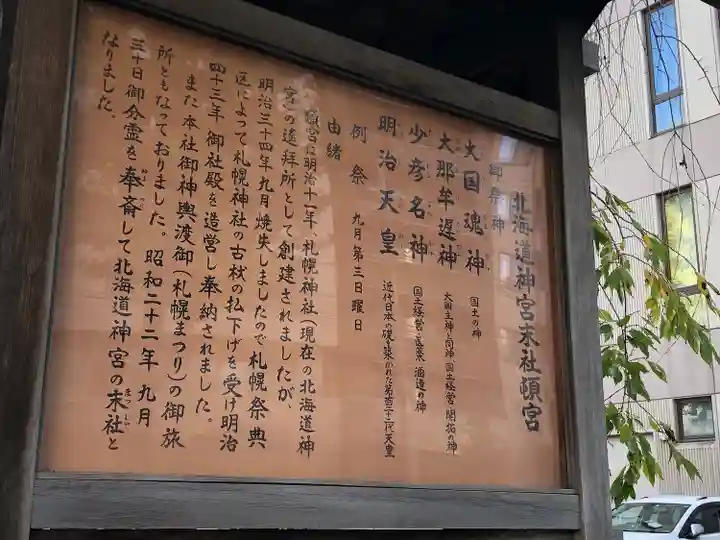 北海道神宮末社頓宮
御祭神
大国魂神 国土の神
大那牟遅神 大国主神と同神 国土経営・開拓の神
少彦名神 国土経営・医薬・酒造の神
明治天皇 近代日本の礎を築かれた第百二十二代天皇
例祭 九月第三日曜日
由緒
頓宮は明治十一年、札幌神社(現在の北海道神
宮)の遙拝所として創建されましたが、
明治三十四年九月焼失しましたので札幌祭典
区によって札幌神社の古材の払い下げを受け明治
四十三年御社殿を造営し奉納されました。
また本社御神輿渡御(札幌まつり)の御旅
所ともなっておりました。昭和二十二年九月
三十日御分霊を奉斎して北海道神宮の末社と
なりました。